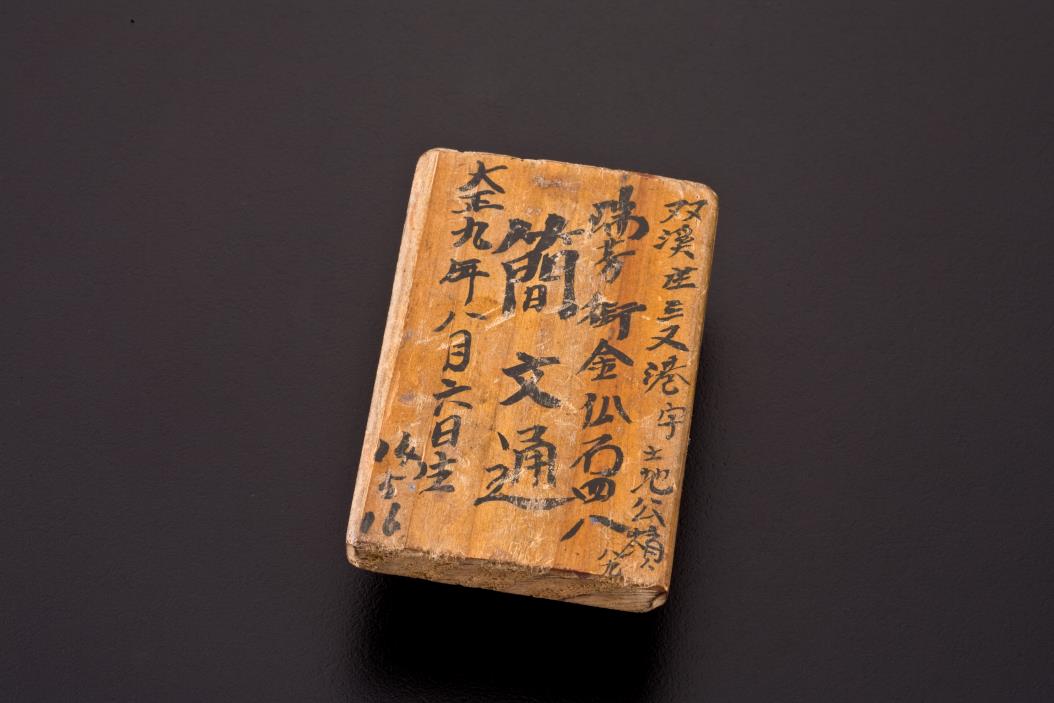 双溪庄三叉港字土地公嶺
瑞芳街金仏石四八
簡文通
大正九年八月六日生